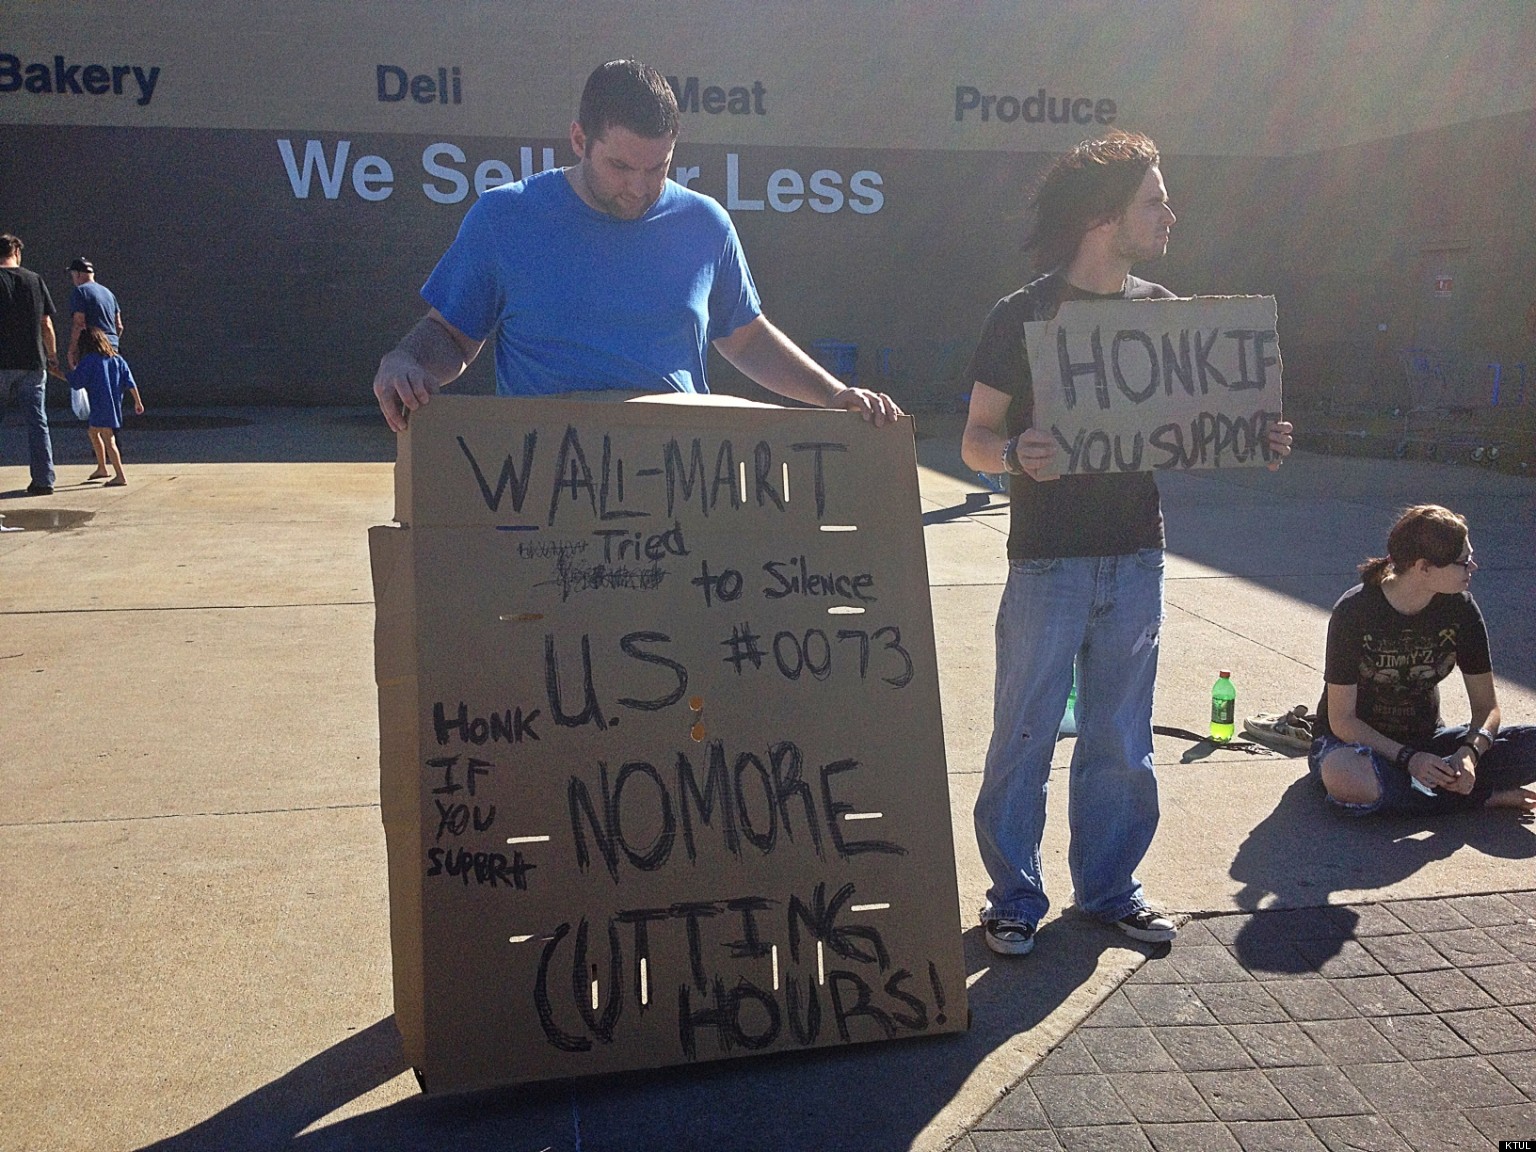 Bakery Deli Meat Produce
We Sell Less
WAL-MART
Tried
to Silence
U.S. #0073
HONK
IF
YOU
SUPPORT
NOMORE
CUTTING
HOURS!
HONK IF
YOU SUPPORT
JIMMY-Z
KTUL